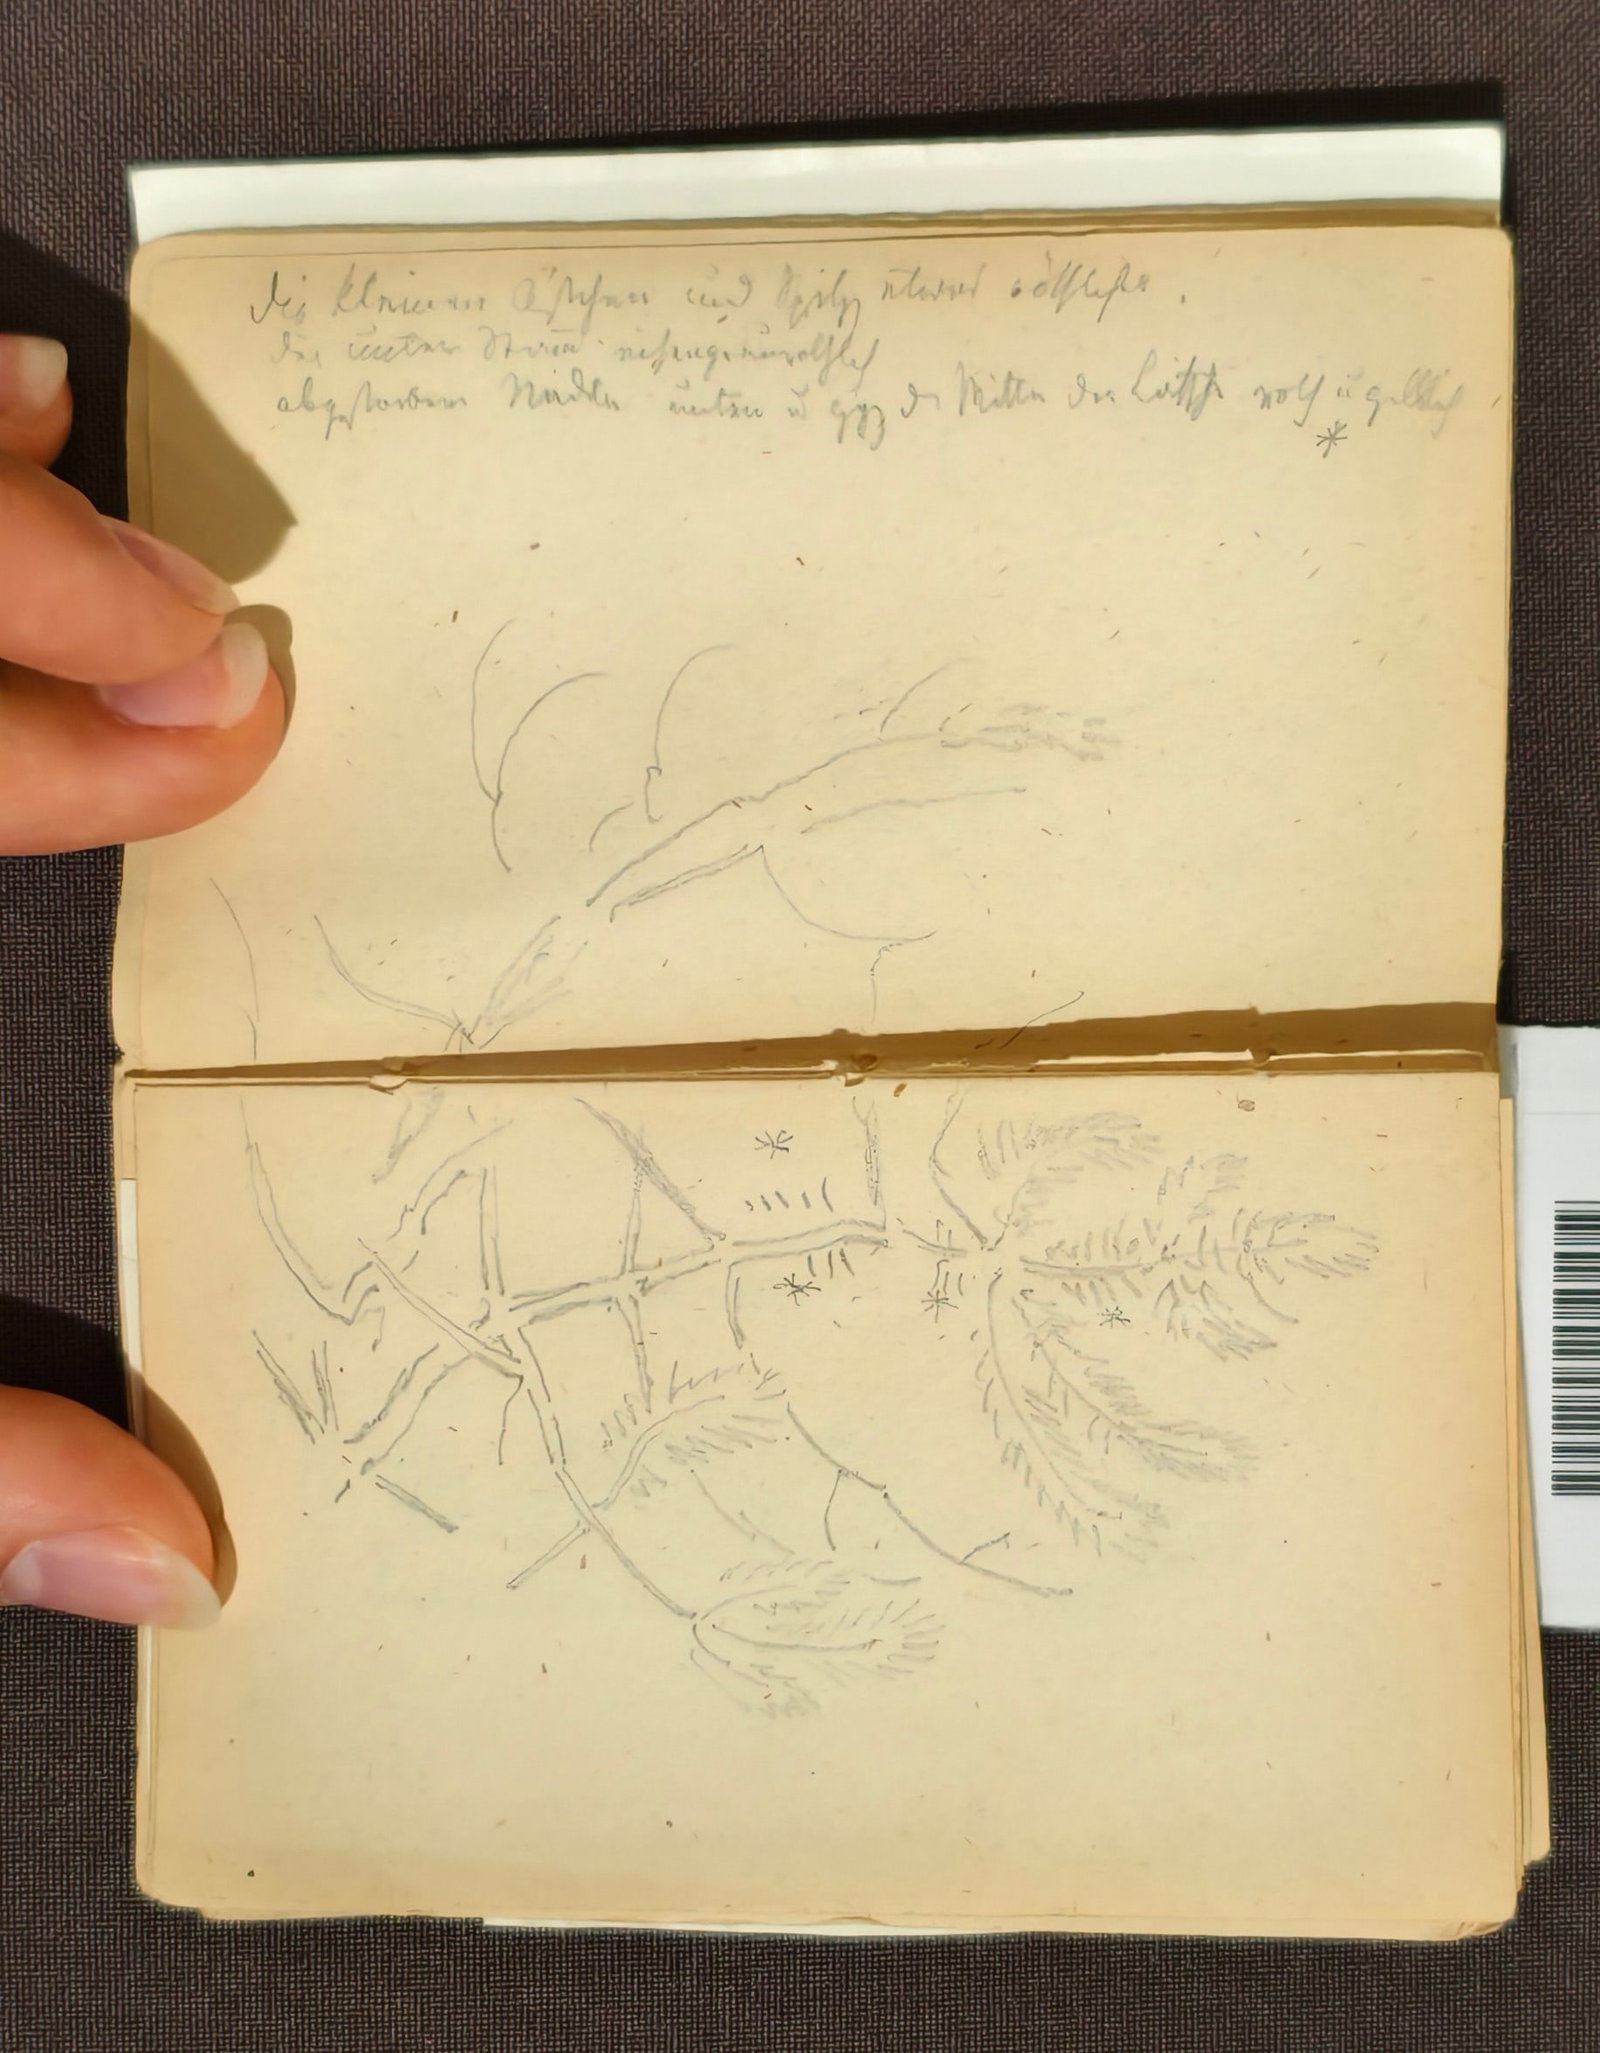 die kleineren Ästchen und Spitz etwas röthlicher.
die untern Stäm
abgestorbene Nadeln unten u geg d Mitte der roth u gelblich
*
*
*
*
*